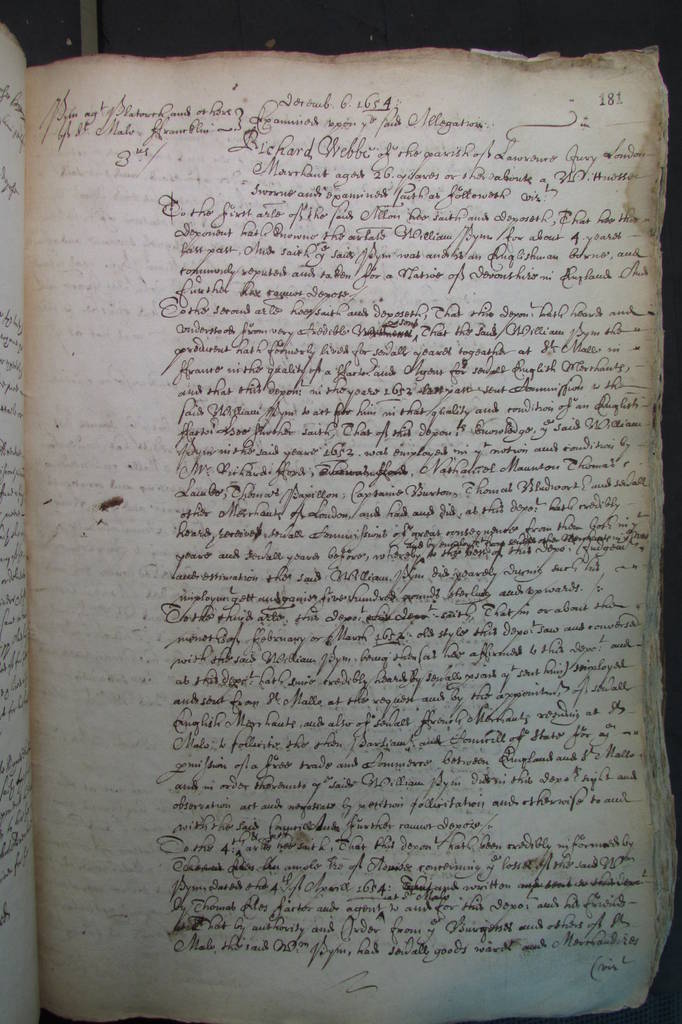 181
Decemb. 6. 1654:
Pym agt Blatorck and others
of St. Malo. Francklin
Examined upon ye said Allegation.
3us/
Richard Webbe of the parish of Lawrence Jury London
Merchant aged 26. yeares or thereabouts a Wittnesse
sworne and examined saith as followeth vizt
To the first arle of the said Allon hee saith and deposeth, That hee this
deponent hath knowne the arlate William Pym for about 4. yeares
last past, And saith ye said Pym was and is an Englishman borne, and
commonly reputed and taken for a Native of Devonshire in England And
further hee cannot depose.
To the second arle hee saith and deposeth, That this depont hath heard and
understood from very credible persons, That the said William Pym the
producent hath formerly lived for severall yeares togeather at St. Mallo in
France in the quality of a Factor and Agent for severall English Merchants,
and that this depont in the yeare 1652 last past sent Commission to the
said William Pym to act for him in that quality and condition of an English
Factor Hee further saith, That of this deponts knowledge, ye said William
Pym in the said yeare 1652. was employed in ye notion and condition by
Mr. Richard fford, Nathaniel Maunton Thomas
Lambe, Thomas Papillon, Captaine Burton, Thomas Bludworth and severall
other Merchants of London, and had and did, as this depont hath credibly
heard, received severall Commissions of great consequence from them both in yt
yeare and severall yeares before, whereby to the best of this depots Judgemt
and estimation the said William Pym did yearely during such his
imployment gett and gaine five hundred pounds sterling and upwards.
To the third arle. this depot saith, That in or about the
moneths of February or March 1652. old style this depot saw and conversed
with the said William Pym, being then (as hee affirmed to this depot and
as this depot hath since credibly heard by severall psons yt sent him) imployed
and sent from St. Mallo at the request and by the appointmt of severall
English Merchants, and also of severall French Merchants residing at St.
Malo, to sollicite the then Parliamt and Councill of State for a
pmission of a free trade and Commerce betweene England and St. Mallo
and in order thereunto ye said William Pym did in this depots sight and
observation act and negotiate by petition sollicitation and otherwise to and
with the said Councill And further cannot depose/.
To the 4th arle hee saith, That this depont hath been credibly informed by
an ample tre of Advice concerning ye losses of the said Wm
Pym dated the 4th of Aprill 1654: and written
by Thomas Eles factor and agent at St Malo to and for this depot and his friends
That by authority and Order from ye Burgesses and others of St.
Malo, the said Wm Pym, had severall goods wares and Merchandizes
(vizt